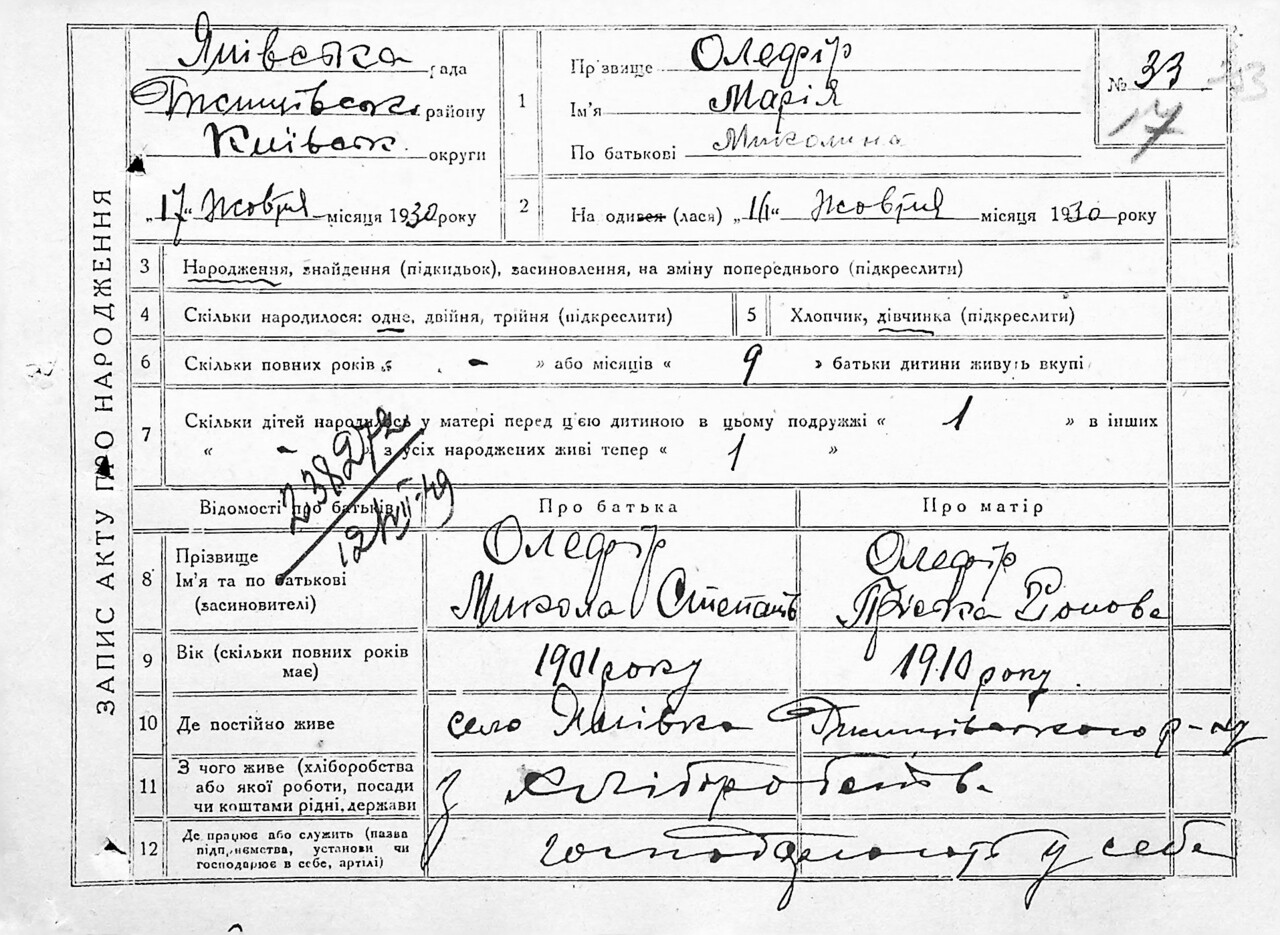 ЗАПИС АКТУ ПРО НАРОДЖЕННЯ
Янівська рада
району
Київськ. округи
„17“ Жовтня місяця 1930 року
1
Прізвище Олефір
Ім'я Марія
По батькові Миколина
№ 33
17
2 На одився (лася) „14“ Жовтня місяця 1930 року
3 Народження, знайдення (підкидьок), засиновлення, на зміну попереднього (підкреслити)
4 Скільки народилося: одне, двійня, трійня (підкреслити)
5 Хлопчик, дівчинка (підкреслити)
6 Скільки повних років - » або місяців « 9 » батьки дитини живуть вкупі
7 Скільки дітей народилось у матері перед цією дитиною в цьому подружжі « 1 » в інших
« - » з усіх народжених живі тепер « 1 »
238272
12/VII-49
Відомості про батьків
Про батька
Про матір
8 Прізвище
Ім'я та по батькові
(засиновителі)
Олефір
Микола Степанів
Олефір
Пріська
9 Вік (скільки повних років
має)
1901 року
1910 року
10 Де постійно живе
село Янівка р-ну
11 З чого живе (хліборобства
або якої роботи, посади
чи коштами рідні, держави
з хліборобств.
12 Де працює або служить (назва
підприємства, установи чи
господарює в себе, артілі)
господарюють у себе